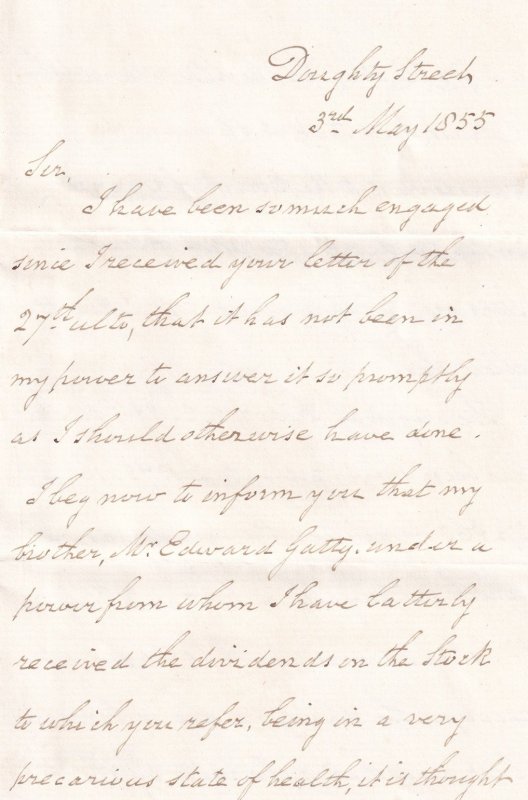 Doughty Street,
3rd May 1855
Sir,
I have been so much engaged
since I received your letter of the
27th ulto, that it has not been in
my power to answer it so promptly
as I should otherwise have done.
I beg now to inform you that my
brother, Mr. Edward Gatty, under a
power from whom I have latterly
received the dividends on the Stock
to which you refer, being in a very
precarious state of health, it is thought